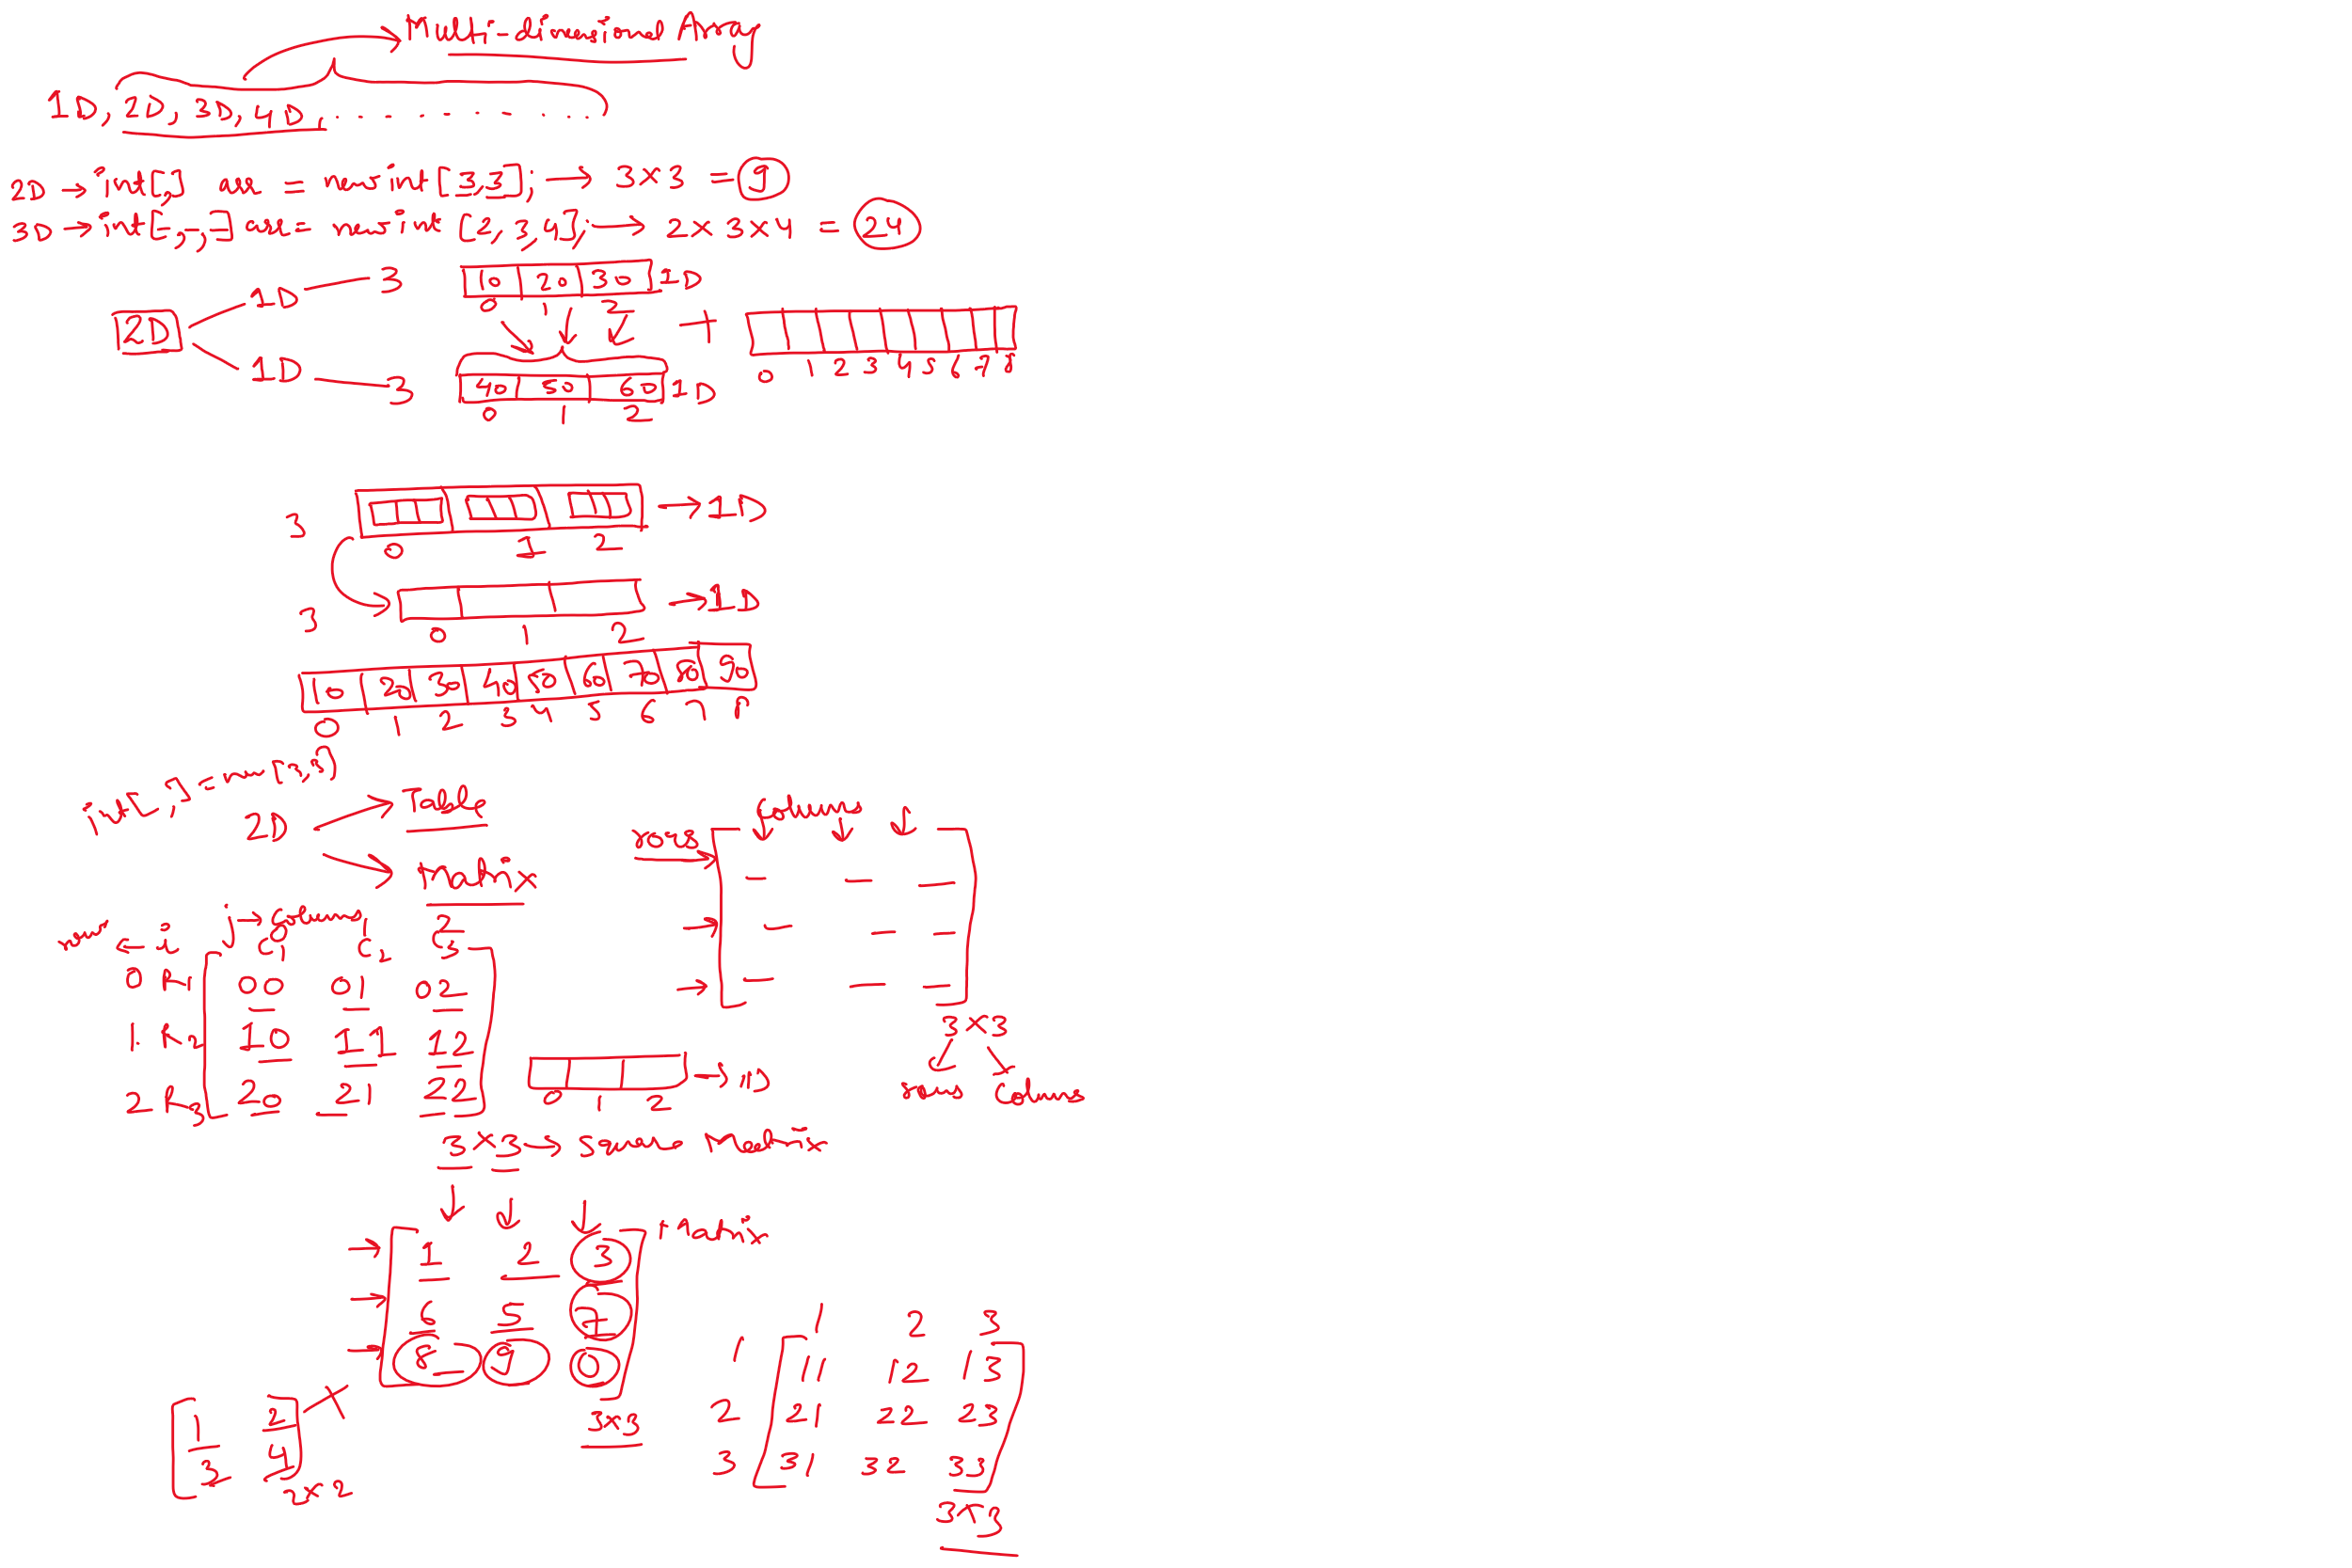 Multi-dimensional Array
1D, 2D, 3D, 4D, . . . . . . . . . .
2D → int[,] arr = new int[3,3]; → 3×3 = 9
3D → int[-,-,-] arr = new int [2,3,4]; → 2×3×4 = 24
2D
1D 3
10 20 30 1D
0 1 2
+
0 1 2 3 4 5 6 7 8
1D 3
40 50 60 1D
0 1 2
3 → 1D
0 1 2
3 → 1D
0 1 2
10 20 30 40 50 60 70 80 90
0 1 2 3 4 5 6 7 8
int[,] = new [3,3]
2D
Table
Matrix
Columns
rows
3×3
row Columns
row ← i j → Column 1 2
C1 C2 C3
0 R1 00 01 02
1. R2 10 11 12
2 R3 20 21 22
→ 1D
0 1 2
3×3 → Square Matrix
Matrix
1 2 3
6 5 7
8 9 0
3×3
1 2
3 4
2×2
1 2 3
1 11 12 13
2 21 22 23
3 31 32 33
3×3